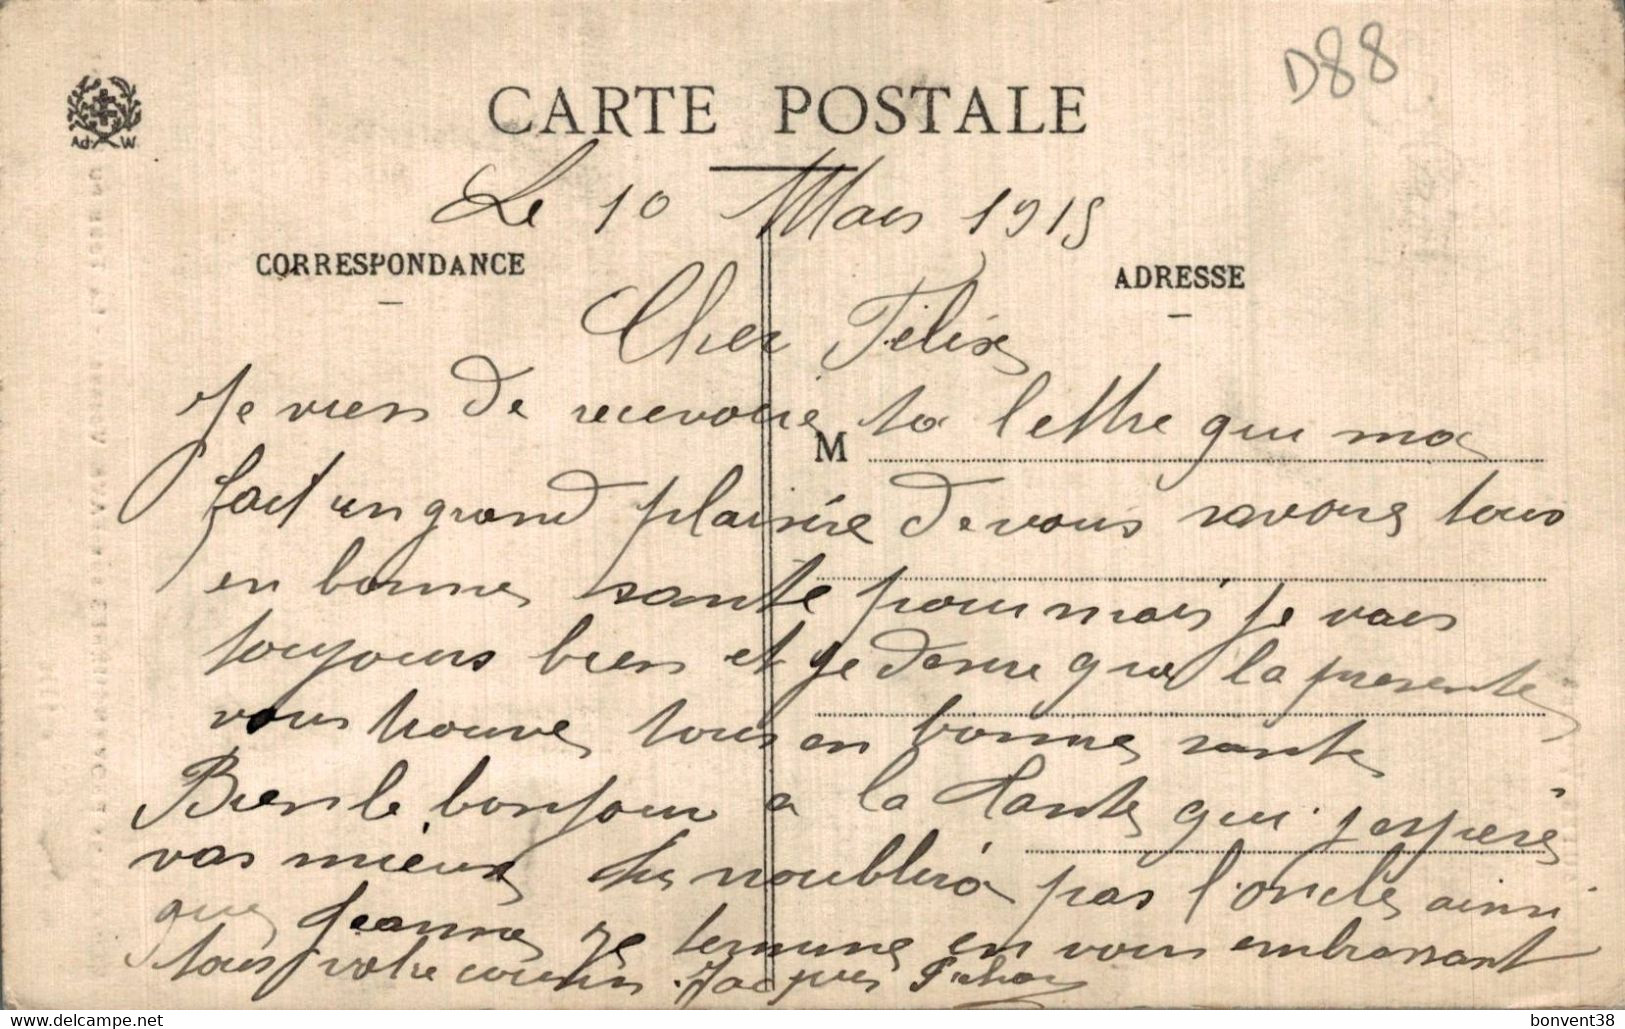 D88
CARTE POSTALE
Ad. W.
Le 10 Mars 1915
CORRESPONDANCE
ADRESSE
Cher Félix
Je viens de recevoire ta lettre qui ma
M
fait un grand plaisire de vous savoire tous
en bonne santé pour mais je vais
toujours bien et je desire que la presente
vous trouve tous en bonne sante
Bien le bonjour a la Tante qui jespère
vas mieux tu noublira pas l'oncle ainsi
que Jeanne je termine en vous embrassant
tous votre cousin Jacques
bonvent38